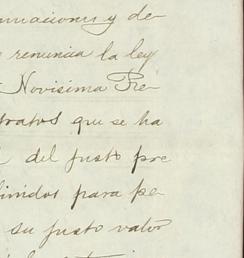 nuaciones y de-
renuncia la ley
Novisima Re-
tratos que se ha
del justo pre
finidos para pe-
su justo valor